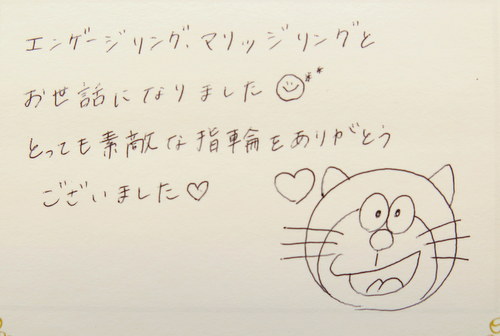 エンゲージリング、マリッジリングと
お世話になりました☺**
とっても素敵な指輪をありがとう
ございました♡